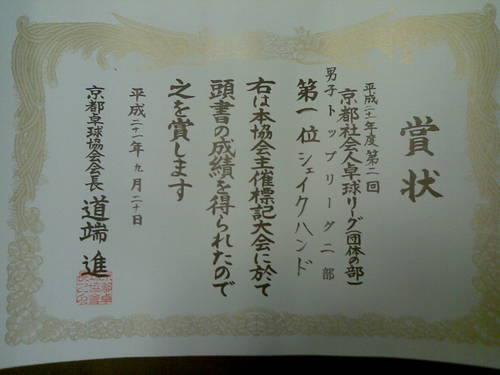 賞状
平成二十一年度 第二回
京都社会人卓球リーグ(団体の部)
男子トップリーグ二部
第一位 シェイクハンド
右は本協会主催標記大会に於て
頭書の成績を得られたので
之を賞します
平成二十一年九月二十日
京都卓球協会会長 道端 進